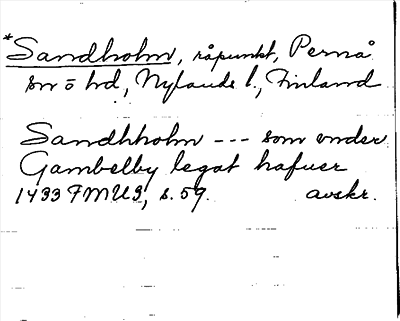 *Sandholm, råpunkt, Pernå
sn ö hd, Nylands l., Finland
Sandhholm --- som vnder
Gambelby legat hafuer
1433 FMU3, s. 59. avskr.